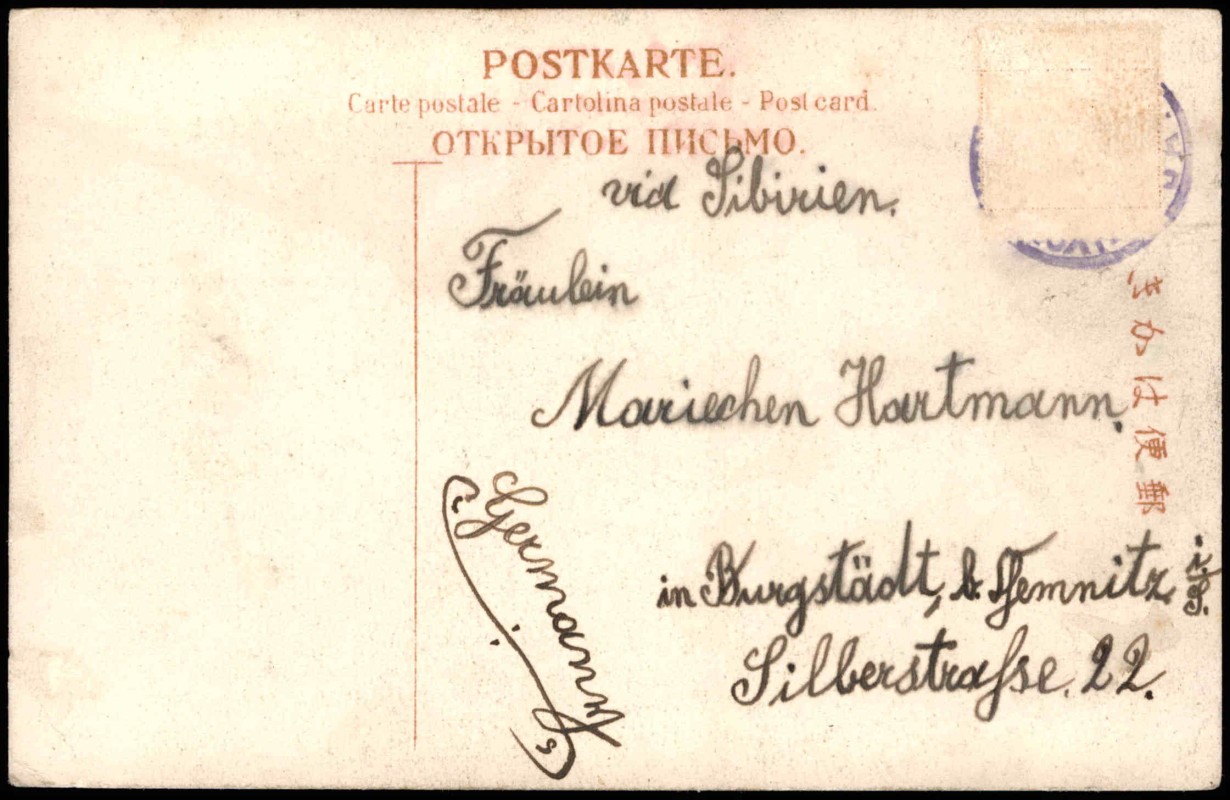 POSTKARTE.
Carte postale - Cartolina postale - Post card.
ОТКРЫТОЕ ПИСЬМО.
via Sibirien.
Fräulein
Mariechen Hartmann.
in Burgstädt, b. Chemnitz, i/S.
Silberstraße. 22.
Germany
郵便はかき